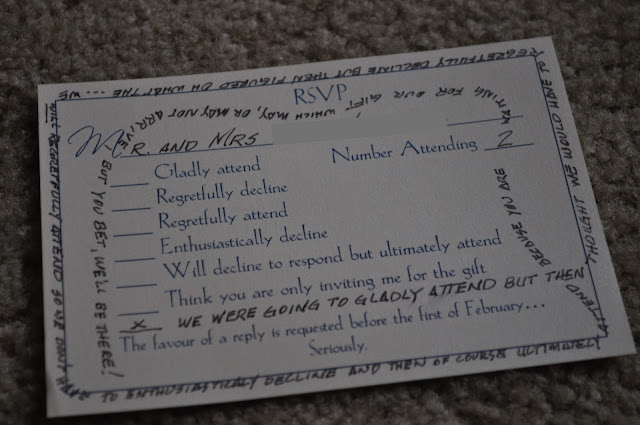 RSVP
MR. AND MRS
Number Attending 2
Gladly attend
Regretfully decline
Regretfully attend
Enthusiastically decline
Will decline to respond but ultimately attend
Think you are only inviting me for the gift
X WE WERE GOING TO GLADLY ATTEND BUT THEN
THOUGHT WE WOULD HAVE TO
REGRETFULLY DECLINE BUT THEN FIGURED OH WHAT THE ... WE
WILL REGRETFULLY ATTEND SO WE DON'T HAVE
TO ENTHUSIASTICALY DECLINE AND THEN OF COURSE ULTIMATELY
ATTEND
BECAUSE YOU ARE
WAITING FOR OUR GIFT, WHICH MAY, OR MAY NOT ARRIVE
BUT YOU BET, WE'LL BE THERE!
The favour of a reply is requested before the first of February...
Seriously.